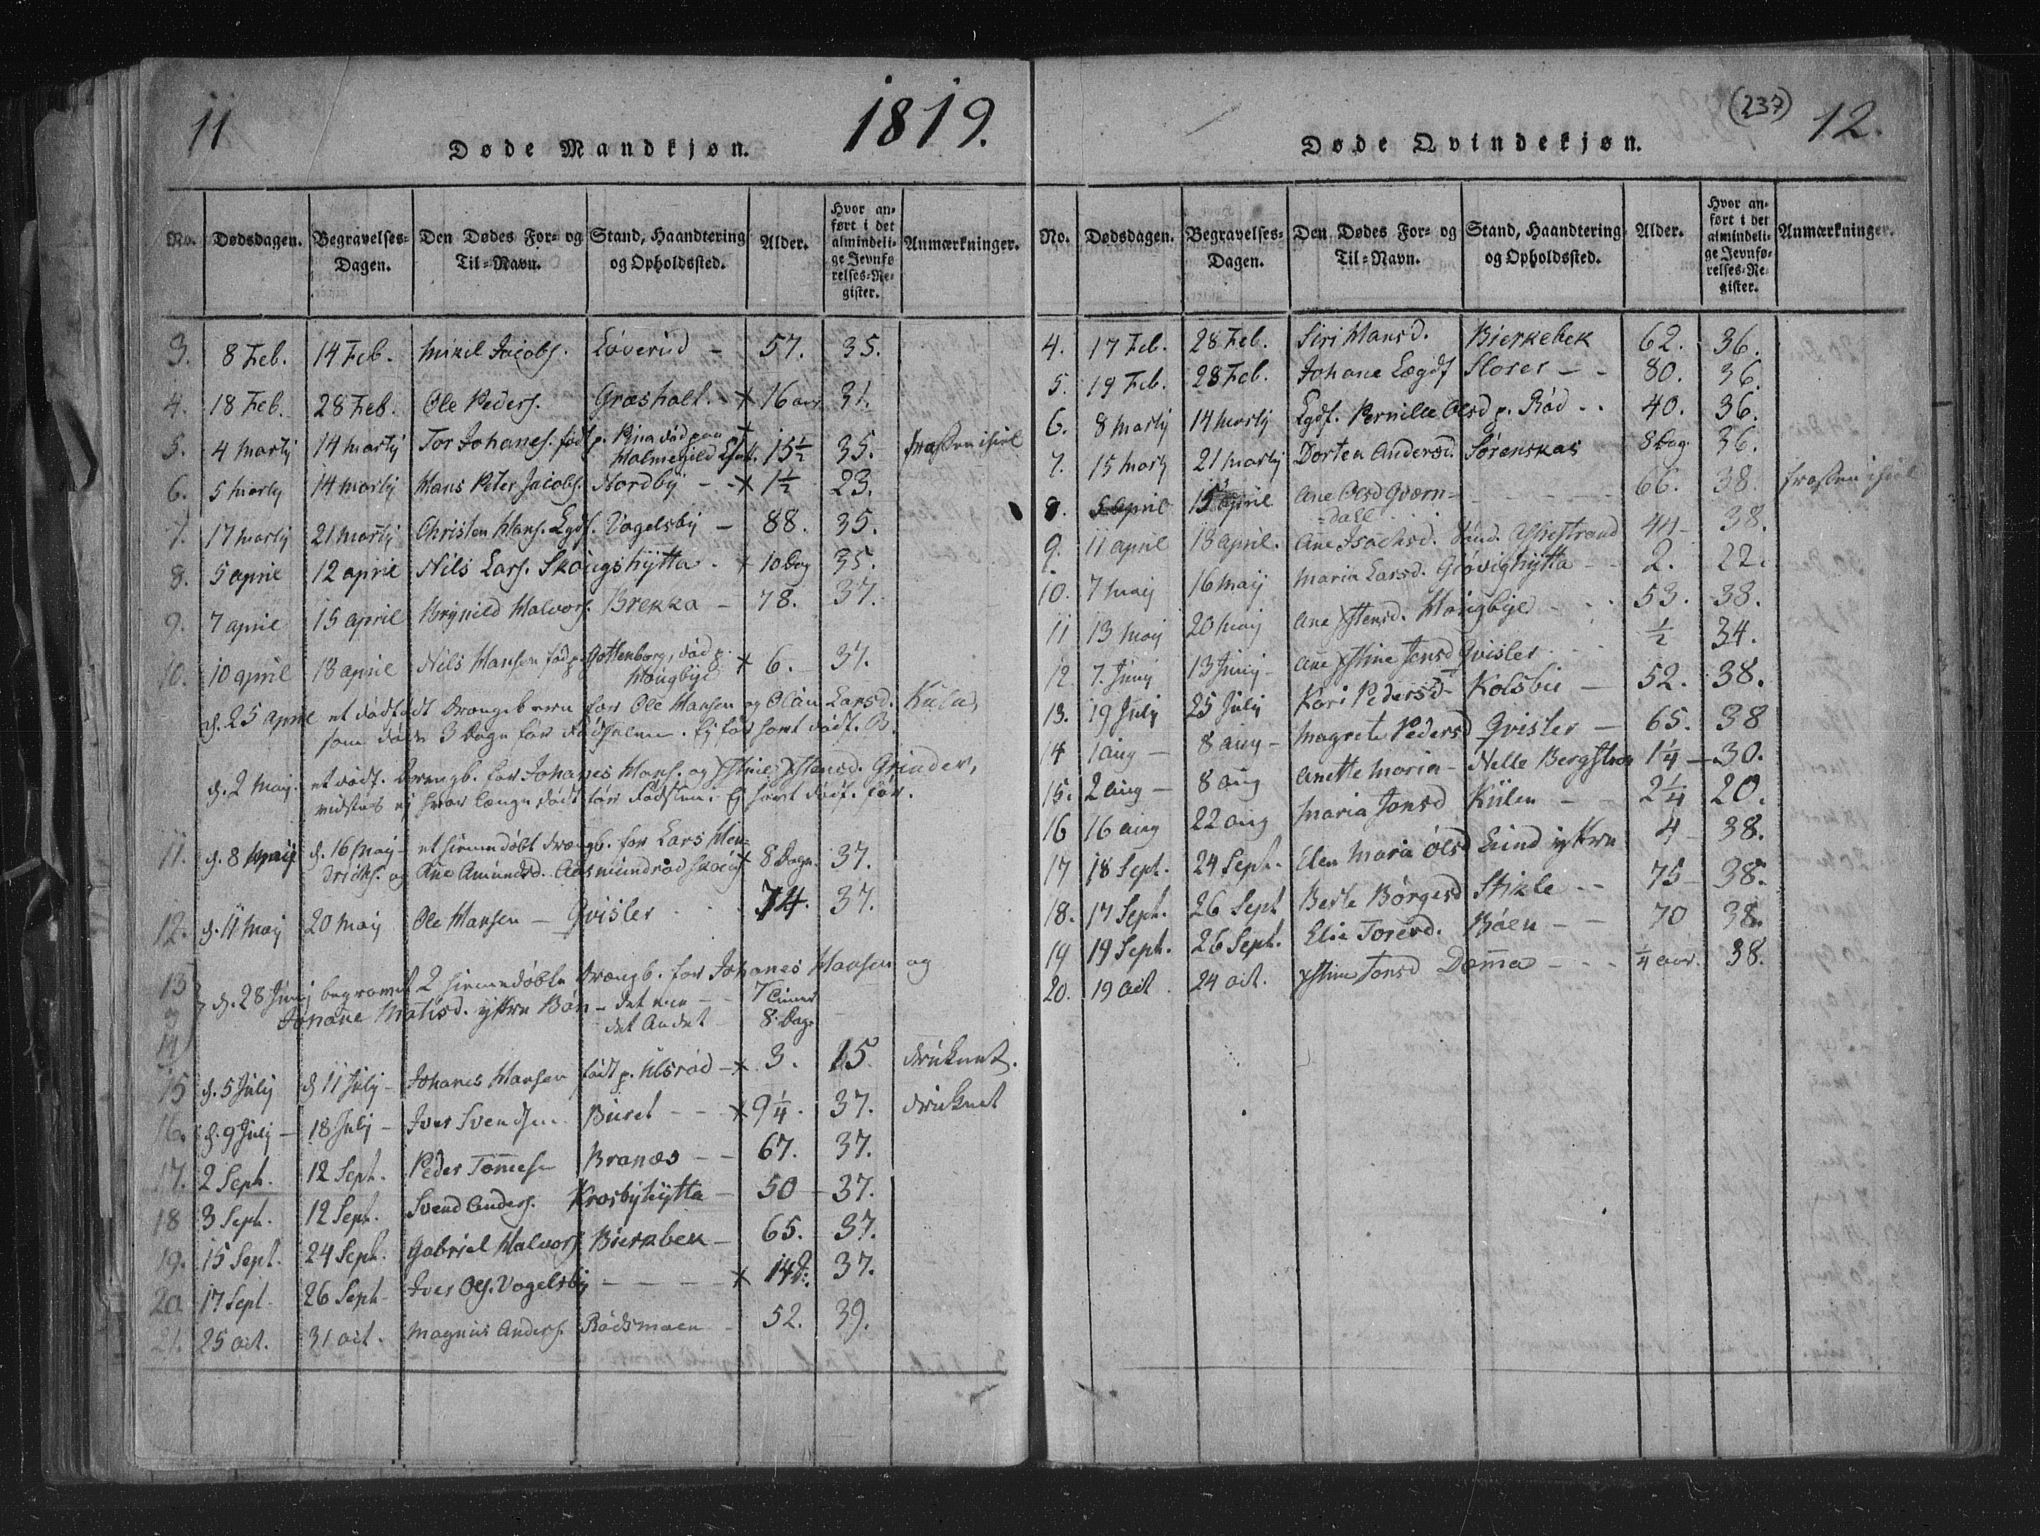 11
1819.
Døde Mandkjøn.
No. Dødsdagen. Begravelses-Dagen. Den Dødes For- og Til-Navn. Stand, Haandtering og Opholdssted. Alder. Hvor anført i det almindelige Jevnførelses-Register. Anmærkninger.
3. 8 Feb. 14 Feb. Mikel Jacobs. Løverud - 57. 35.
4. 18 Feb. 28 Feb. Ole Peders. Græsholt - x 16 aar 31.
5. 4 Martij 14 martij Tor Johanes. født p. død paa
Holmegild 15½ 35.
6. 5 Martij 14 martij Hans Peter Jacobs. Nordby - - x 1½ 23.
7. 17 martij 21 martij Christen Hans. Lgds. Vogelsby - 88. 35.
8. 5 april 12 april Nils Lars. Skougshytta - x 10 Dag 35.
9. 7 april 15 april Brynild Halvors. Brekka - 78. 37.
10. 10 april 18 april Nils Hansen fød p. Gottenborg, død p.
Hougbye x 6. 37.
d. 25 april et dødfødt Drengebarn for Ole Hansen og Olau Larsd.
som døde 3 Dage før Fødselen. Ej før havt dødf. B.
d. 2 Maij et dødf. Drengb. for Johanes Hans. og Xstine Xstensd. Grinder,
vidstes ej hvor længe dødt før Fødslen. Ej havt dødf. før.
11. d. 8 Maij d. 16 Maij - et hiemmedøbt Drengb. for Lars Hen-
dricks. og Ane Amundsd. Aasmundrød x 8 Dage. 37.
12. d. 11 Maij 20 Maij Ole Hansen - Qvisler 74. 37.
13 d. 28 Junij begravet 2 hiemmedøbte Drengb. for Johanes Hansen og
Johane Matisd. yttre Bøn - det ene - - 7 Timer
det Andet - 8 Dag.
14
15 d. 5 Julij d. 11 Julij - Johanes Hansen født p. Ulsrød - x 3. 15. druknet.
16. d. 9 Julij - 18 Julij - Iver Svendsen Buret - - x 9¼. 37. druknet
17. 2 Sept. 12 Sept. Peder Tomesen Branæs - - 67. 37.
18 3 Sept. 12 Sept. Svend Anders. Krosbyhytta - 50 - 37.
19. 15 Sept. 24 Sept. Gabriel Halvors. Bierkbek - 65. 37.
20 17 Sept. 26 Sept. Iver Ols. Vogelsby - - - - x 14 D. 37.
21. 25 oct. 31 oct. Magnus Anders. Rødsmoen - 52. 39.
(237)
12.
Døde Qvindekjøn.
No. Dødsdagen. Begravelses-Dagen. Den Dødes For- og Til-Navn. Stand, Haandtering og Opholdssted. Alder. Hvor anført i det almindelige Jevnførelses-Register. Anmærkninger.
4. 17 Feb. 28 Feb. Siri Hansd. Bierkebek 62. 36.
5. 19 Feb. 28 Feb. Johane Lægdf Slorer - - 80. 36.
6. 8 martij 14 martij Lgdf. Pernille Olsd p. Rød - - 40. 36.
7. 15 martij 21 martij Dorten Andersd. Sørenskas 8 Dag. 36.
8. 5 april 15 april Ane Olsd Qværn-
dall 66. 38.
9. 11 april 18 april. Ane Isachsd. 44 - 38.
10. 7 maij 16 maij Maria Larsd. Gløvighytta - - 2. 22.
11 13 maij 20 maij Ane Xstensd. Hougbye - - 53. 38.
12 7. Junij 13 Junij - Ane Xstine Jensd Qvisler ½ 34.
13. 19 Julij 25 Julij Kari Pedersd - Kolsbu - 52. 38.
14 1 aug - 8 aug - Magrete Pedersd Qvisler - 65. 38
15. 2 aug - 8 aug Anette Maria - Nelle Bergstrøm 1¼ - 30.
16 16 aug 22 aug Maria Jonsd Kiilen - - 2¼ 20.
17 18 Sept. 24 Sept. Elen Maria Olsd Lund yttre 4 - 38.
18. 17 Sept. 26 Sept Berte Børgesd Stikle - - 75 - 38.
19 19 Sept. 26 Sept. Elie Toresd. Bøen - - 70 38.
20. 19 oct 24 oct. Xstine Jonsd Damma - - - ¼ aar. 38.